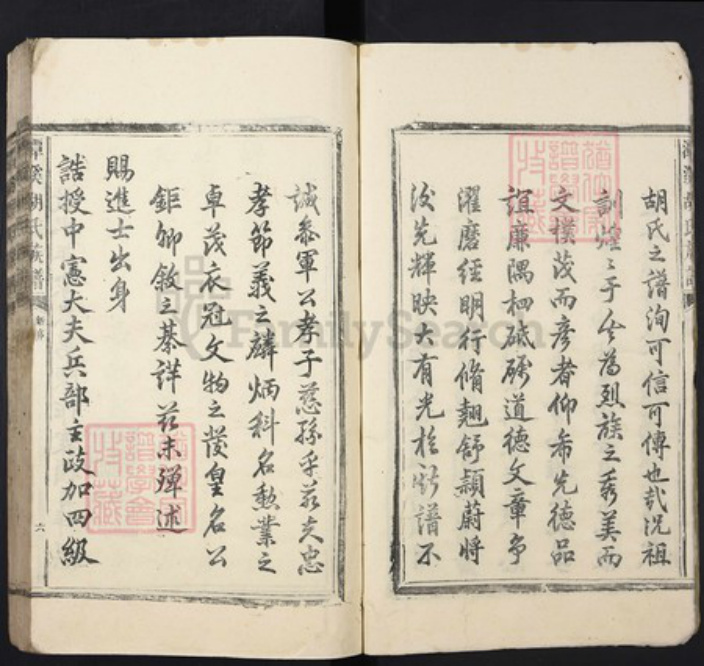 胡氏之譜洵可信可傳也哉況祖
訓煌〻于今為烈族之秀美而
文樸茂而彥者仰希先德品
誼廉隅相砥礪道德文章爭
濯磨經明行脩翹舒穎蔚將
後先輝映大有光於斯譜不
誠叅軍公孝子慈孫乎若夫忠
孝節義之麟炳科名勳業之
卓茂衣冠文物之俊皇名公
鉅卿敘之綦詳茲未殫述
賜進士出身
誥授中憲大夫兵部主政加四級
胡氏族譜
六
FamilySearch